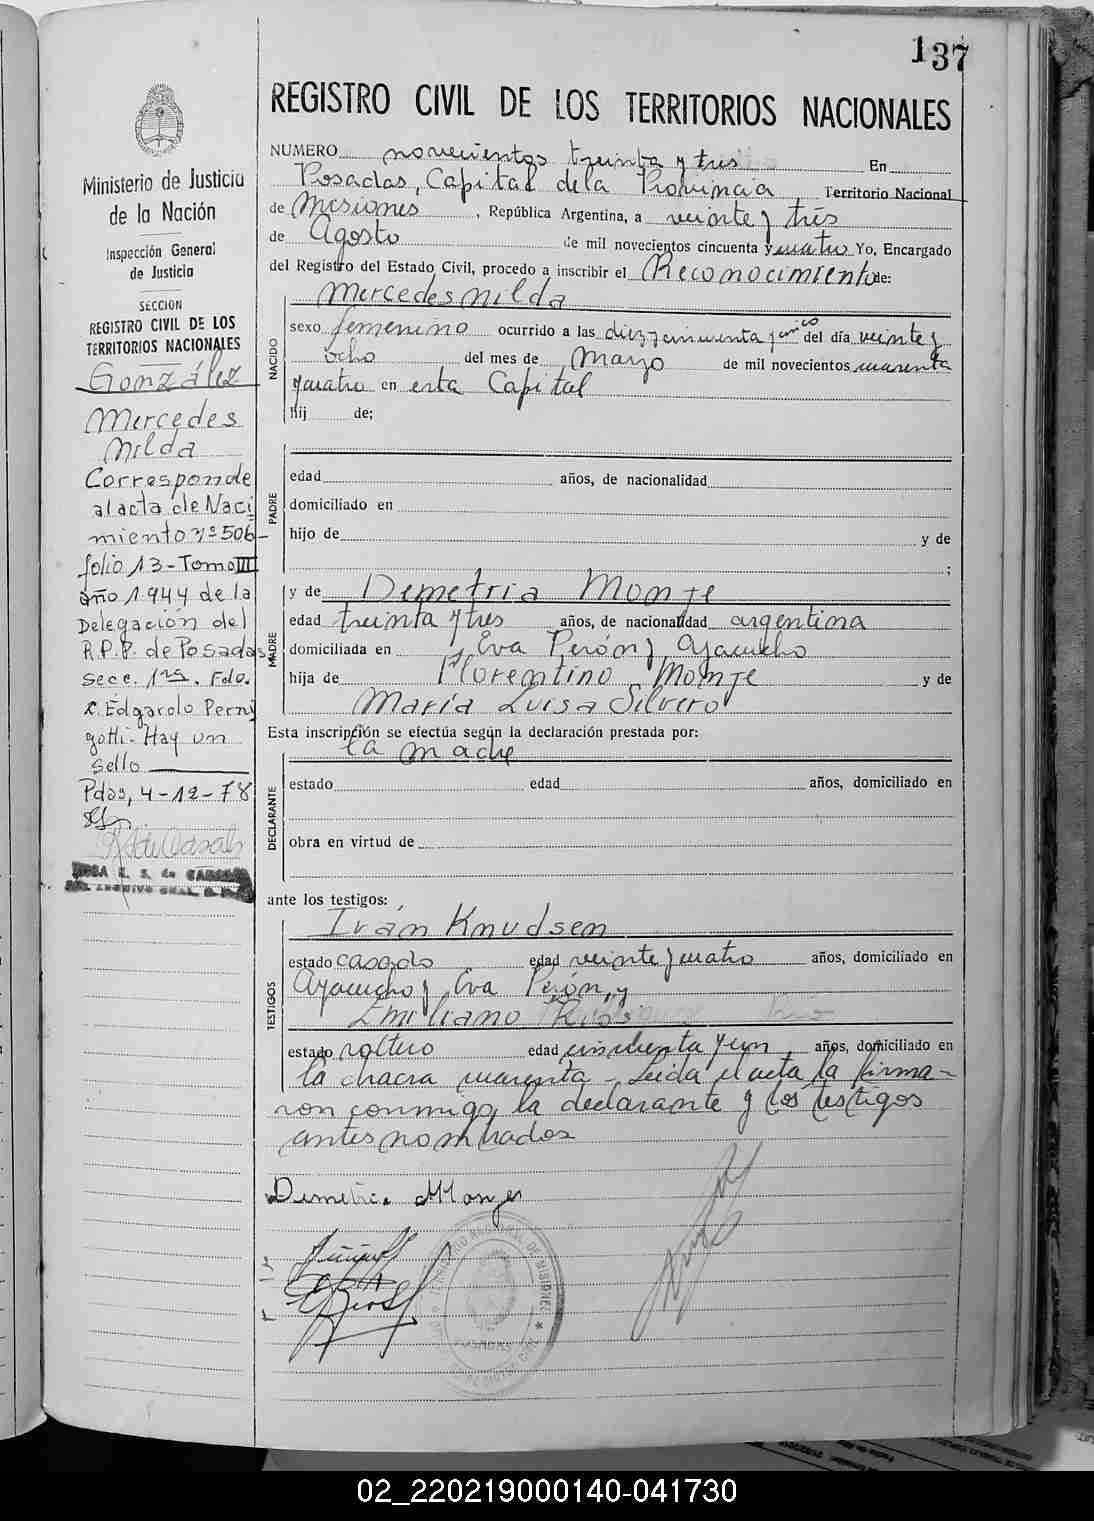 137
REGISTRO CIVIL DE LOS TERRITORIOS NACIONALES
NUMERO novecientos treinta y tres En
Posadas, Capital de la Provincia Territorio Nacional
de Misiones, República Argentina, a veinte y trés
de Agosto de mil novecientos cincuenta y cuatro Yo, Encargado
del Registro del Estado Civil, procedo a inscribir el Reconocimiento de:
NACIDO
Mercedes Nilda
sexo femenino ocurrido a las diez y cincuenta y cinco del día veinte y
ocho del mes de Marzo de mil novecientos cuarenta
y cuatro en esta Capital
hij de;
PADRE
edad años, de nacionalidad
domiciliado en
hijo de y de
;
MADRE
y de Demetria Monje
edad treinta y tres años, de nacionalidad argentina
domiciliada en Eva Perón y Ayacucho
hija de Florentino Monje y de
María Luisa Silvero
Esta inscripción se efectúa según la declaración prestada por:
DECLARANTE
la madre
estado edad años, domiciliado en
obra en virtud de
ante los testigos:
TESTIGOS
Iván Knudsen
estado casado edad veinte y cuatro años, domiciliado en
Ayacucho y Eva Perón, y
Emiliano Ríos
estado soltero edad cincuenta y un años, domiciliado en
la chacra cuarenta - Leida el acta la firma-
ron conmigo, la declarante y los testigos
antes nombrados
Demetria Monges
Ministerio de Justicia
de la Nación
Inspección General
de Justicia
SECCION
REGISTRO CIVIL DE LOS
TERRITORIOS NACIONALES
González
Mercedes
Nilda
Corresponde
al acta de Naci
miento nº 506-
folio 13 - Tomo III
año 1944 de la
Delegación del
R.P.P. de Posadas
Secc. 1ra. Fdo.
Edgardo Perny
gotti - Hay un
Sello
Pdas, 4-12-78
02_220219000140-041730